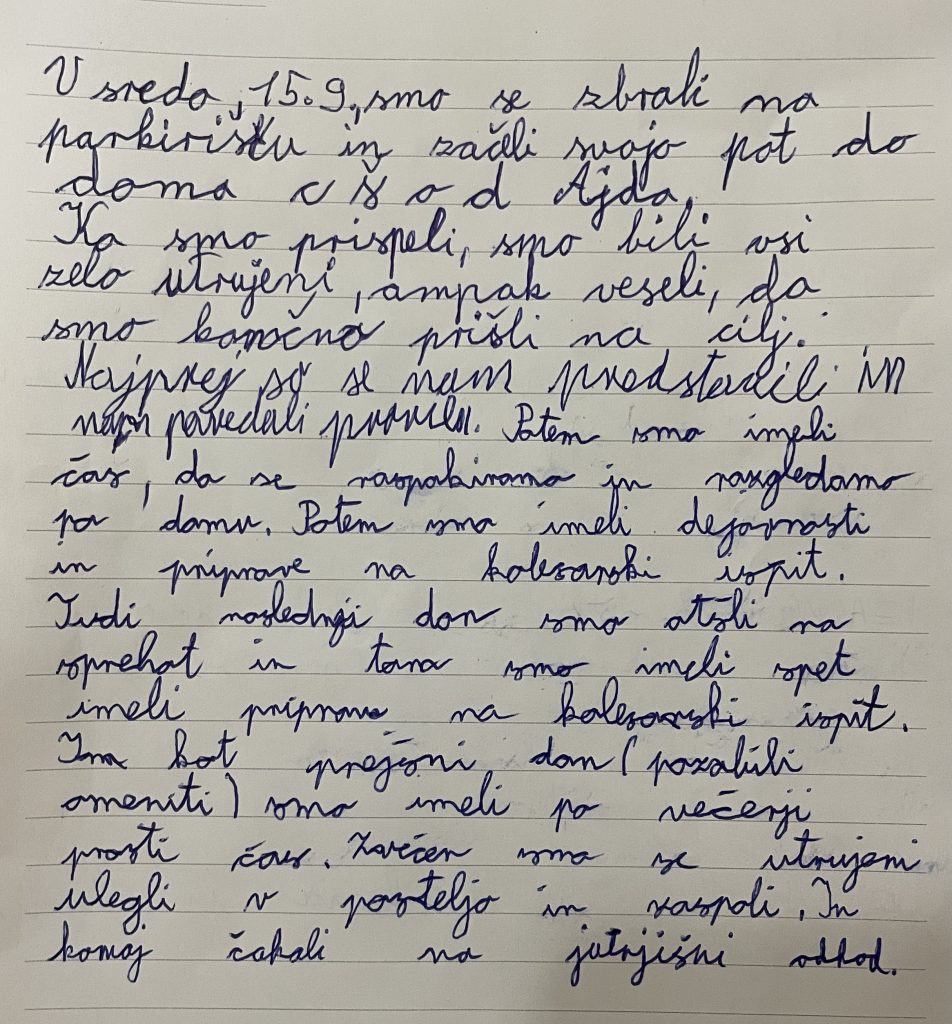 V sredo, 15.9., smo se zbrali na
parkirišku in začeli svojo pot do
doma c š o d Ajda.
Ka smo prispeli, smo bili vsi
zelo utrujeni, ampak veseli, da
smo konočno prišli na cilj.
Najprej so se nam predstavili in
nam povedali pravila. Potem smo imeli
čas, da se raspakiramo in razgledamo
po domu. Potem smo imeli dejavnosti
in priprave na kolesarski ispit.
Tudi naslednji dan smo otšli na
sprehot in tara smo imeli spet
imeli priprave na kolesarski ispit.
Ina kot prejšni dan (pozabili
omeniti) smo imeli po večerji
prosti čas. Zvečer smo se utrujeni
ulegli v posteljo in zaspali. In
komaj čakali na jutrjišni odhod.